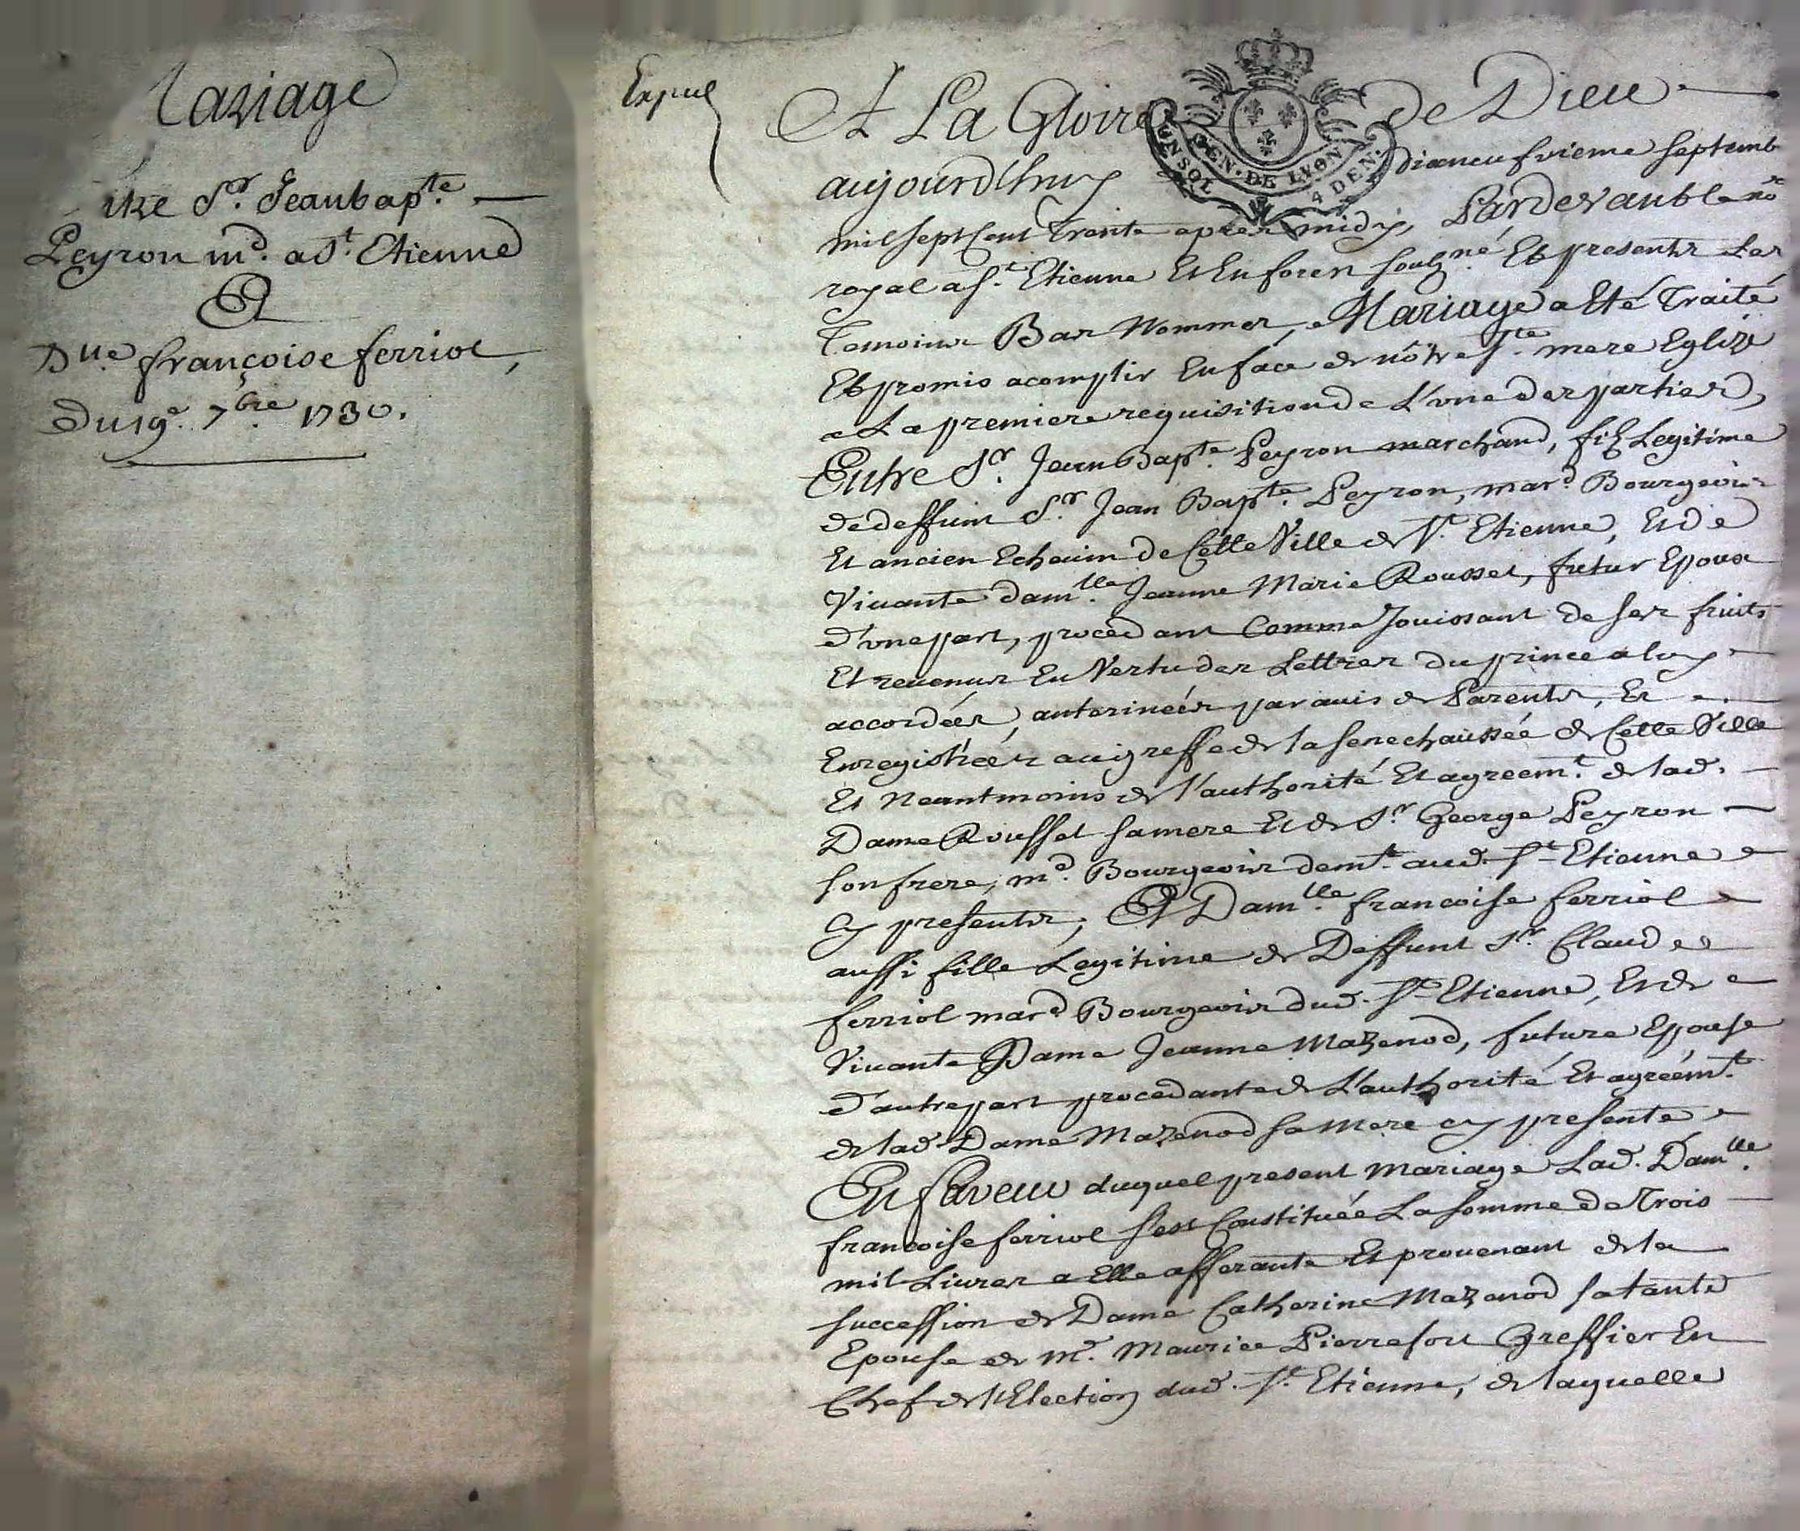 Mariage
Entre Sr. Jeanbapte.
Peyron md. a St. Etienne
Et
Dlle. françoise ferriol,
Du 19e. 7bre. 1730.
A La Gloire de Dieu
GEN. DE LYON
UN SOL 4 DEN.
aujourd'huy dixneufvieme septemb
mil sept Cent Trente apres midy, Pardevant le nore
royal a St. Etienne Et En forez soubzné. Et presents Les
Temoins Bas Nommes, Mariage a Eté Traité
Et promis acomplir En face de nôtre Ste. mere Eglize
a La premiere requisition de L'une des parties,
Entre Sr. Jean Bapte. Peyron marchand, filz Legitime
de deffunt Sr. Jean Bapte. Peyron, mard. Bourgeois
Et ancien Echevin de Cette Ville de St. Etienne, Et de
Vivante damlle. Jeanne Marie Rousset, futur Epoux
d'une part, procedant Comme Jouissant de ses fruits
Et revenus En Vertu des Lettres du prince a luy
accordées, anterinées par avis de Parents, Et
Enregistrées au greffe de la senechaussée de Cette Ville
Et Neantmoins de l'authorité Et agreemt. de lad.
Dame Rousset sa mere Et de Sr. George Peyron
son frere, md. Bourgeois demt. aud. St. Etienne
Cy presents, Et Damlle. francoise ferriol
aussi fille Legitime de Deffunt Sr. Claude
ferriol mard. Bourgeois dud. St. Etienne, Et de
Vivante Dame Jeanne Mazenod, future Epouse
d'autre part procedante de L'authorité Et agréémt.
de lad. Dame Mazenod sa mere cy presente
En faveur duquel present mariage Lad. Damlle.
francoise ferriol s'est Constituée La somme de Trois
mil Livres a Elle afferante Et provenant de la
succession de Dame Catherine Mazenod sa tante
Epouse de Mr. Maurice Pierrefort Greffier En
Chef de l'Election dud. St. Etienne, de laquelle